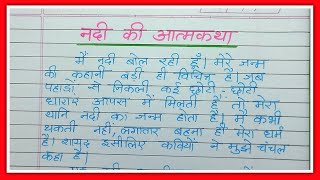 नदी की आत्मकथा
मैं नदी बोल रही हूँ। मेरे जन्म
की कहानी बड़ी ही विचित्र है। जब
पहाड़ों से निकली कई छोटी-छोटी
धाराएं आपस में मिलती हैं, तो मेरा
यानि नदी का जन्म होता है। मैं कभी
थकती नहीं, लगातार बहना ही मेरा धर्म
है। शायद इसीलिए कवियों ने मुझे चंचल
कहा है।